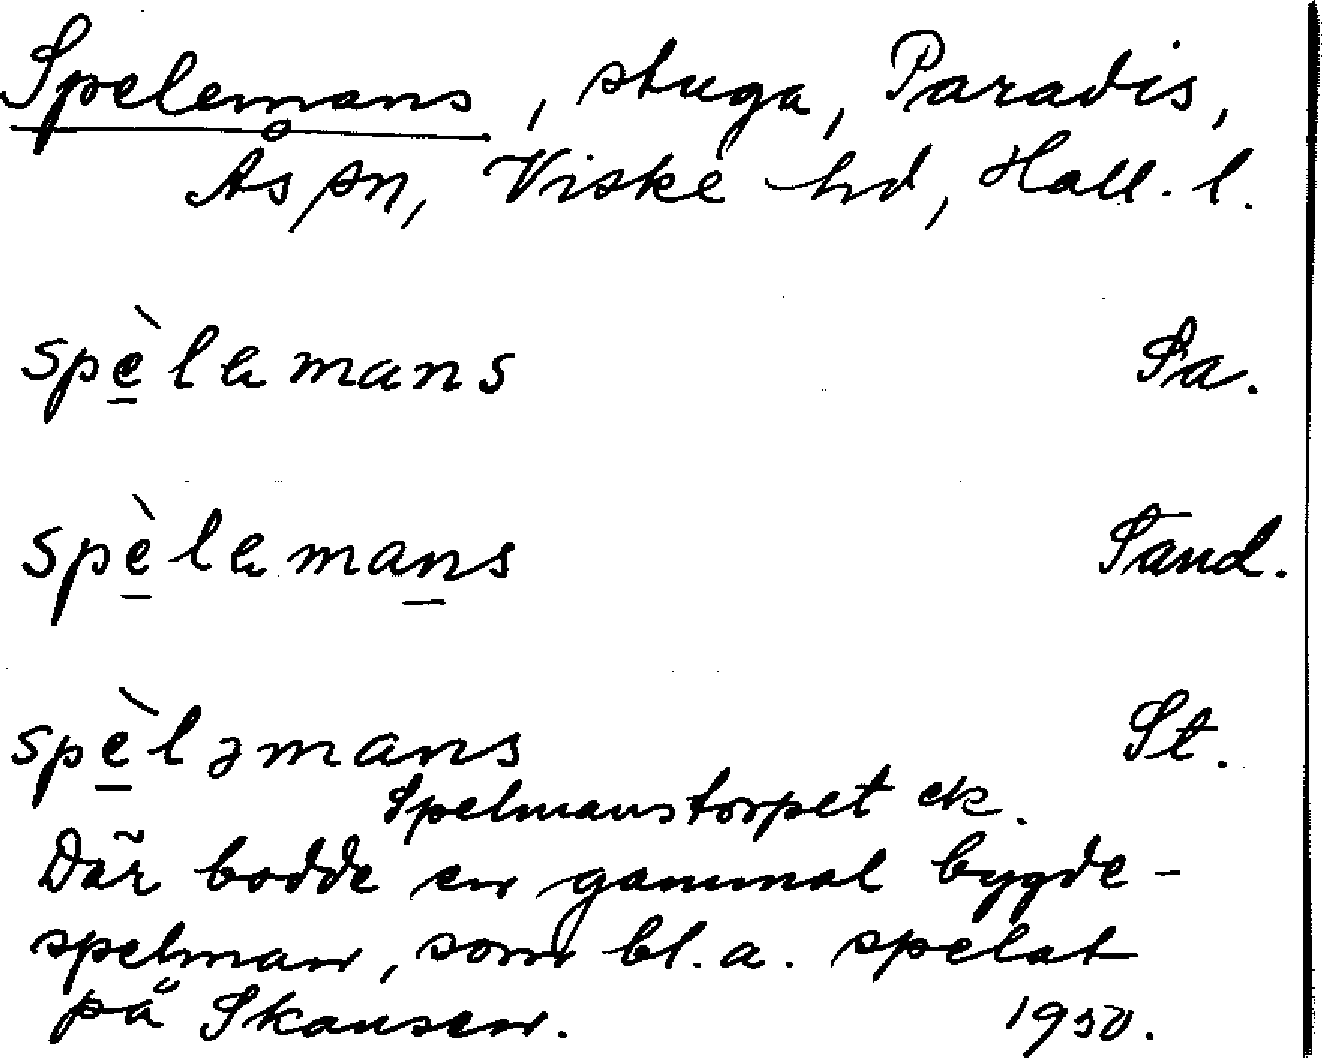 Spelemans, stuga, Paradis,
Ås sn, Viske hd, Hall. l.
spèlamans Pa.
spèlamans Tand.
spèləmans St.
Spelmanstorpet ek.
Där bodde en gammal bygde-
spelman, som bl. a. spelat
på Skansen. 1930.